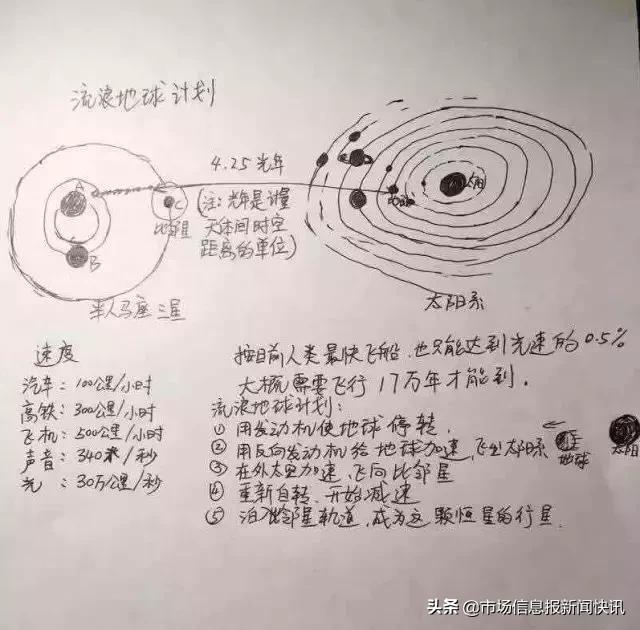 流浪地球计划
4.25光年
(注:光年是计量
天体间时空
距离的单位)
A
B
C
比邻星
半人马座三星
太阳
地球
太阳系
速度
汽车:100公里/小时
高铁:300公里/小时
飞机:500公里/小时
声音:340米/秒
光:30万公里/秒
按目前人类最快飞船,也只能达到光速的0.5%
大概需要飞行17万年才能到.
流浪地球计划:
①用发动机使地球停转.
②用反向发动机给地球加速,飞出太阳系
③在外太空加速,飞向比邻星
④重新自转,开始减速
⑤泊入比邻星轨道,成为这颗恒星的行星.
地球
太阳
头条 @市场信息报新闻快讯